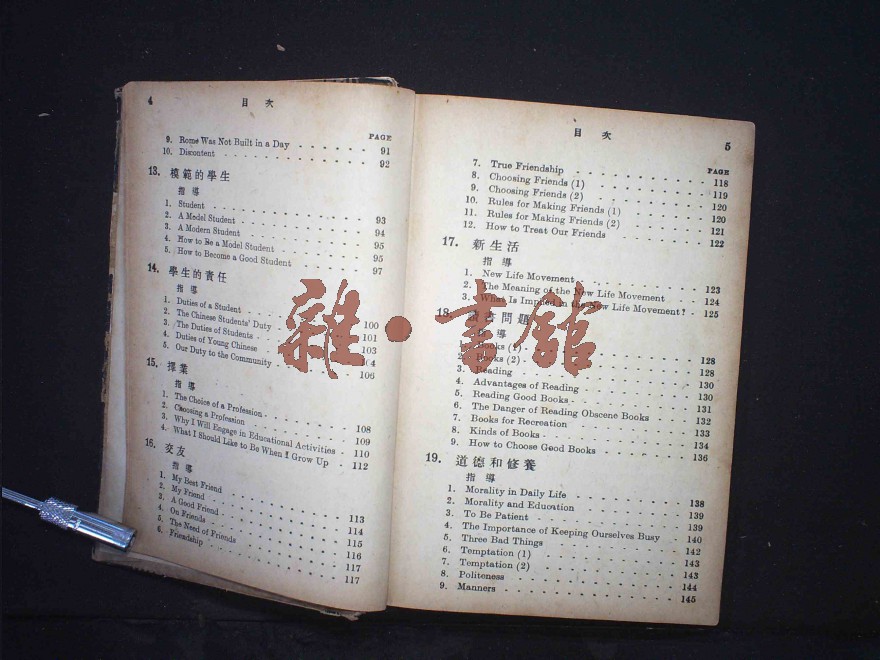 4
目 次
PAGE
9. Rome Was Not Built in a Day 91
10. Discontent 92
13. 模範的學生
指導
1. Student 93
2. A Model Student 94
3. A Modern Student 95
4. How to Be a Model Student 95
5. How to Become a Good Student 97
14. 學生的責任
指導
1. Duties of a Student 100
2. The Chinese Students' Duty 101
3. The Duties of Students 103
4. Duties of Young Chinese 104
5. Our Duty to the Community 106
15. 擇業
指導
1. The Choice of a Profession 108
2. Choosing a Profession 109
3. Why I Will Engage in Educational Activities 110
4. What I Should Like to Be When I Grow Up 112
16. 交友
指導
1. My Best Friend 113
2. My Friend 114
3. A Good Friend 115
4. On Friends 116
5. The Need of Friends 117
6. Friendship 117
目 次
5
PAGE
7. True Friendship 118
8. Choosing Friends (1) 119
9. Choosing Friends (2) 120
10. Rules for Making Friends (1) 120
11. Rules for Making Friends (2) 121
12. How to Treat Our Friends 122
17. 新生活
指導
1. New Life Movement 123
2. The Meaning of the New Life Movement 124
3. What Is Implied in the New Life Movement? 125
18. 讀書問題
指導
1. Books (1) 128
2. Books (2) 128
3. Reading 130
4. Advantages of Reading 130
5. Reading Good Books 131
6. The Danger of Reading Obscene Books 132
7. Books for Recreation 133
8. Kinds of Books 134
9. How to Choose Good Books 136
19. 道德和修養
指導
1. Morality in Daily Life 138
2. Morality and Education 139
3. To Be Patient 139
4. The Importance of Keeping Ourselves Busy 140
5. Three Bad Things 142
6. Temptation (1) 143
7. Temptation (2) 143
8. Politeness 144
9. Manners 145
雜·書館